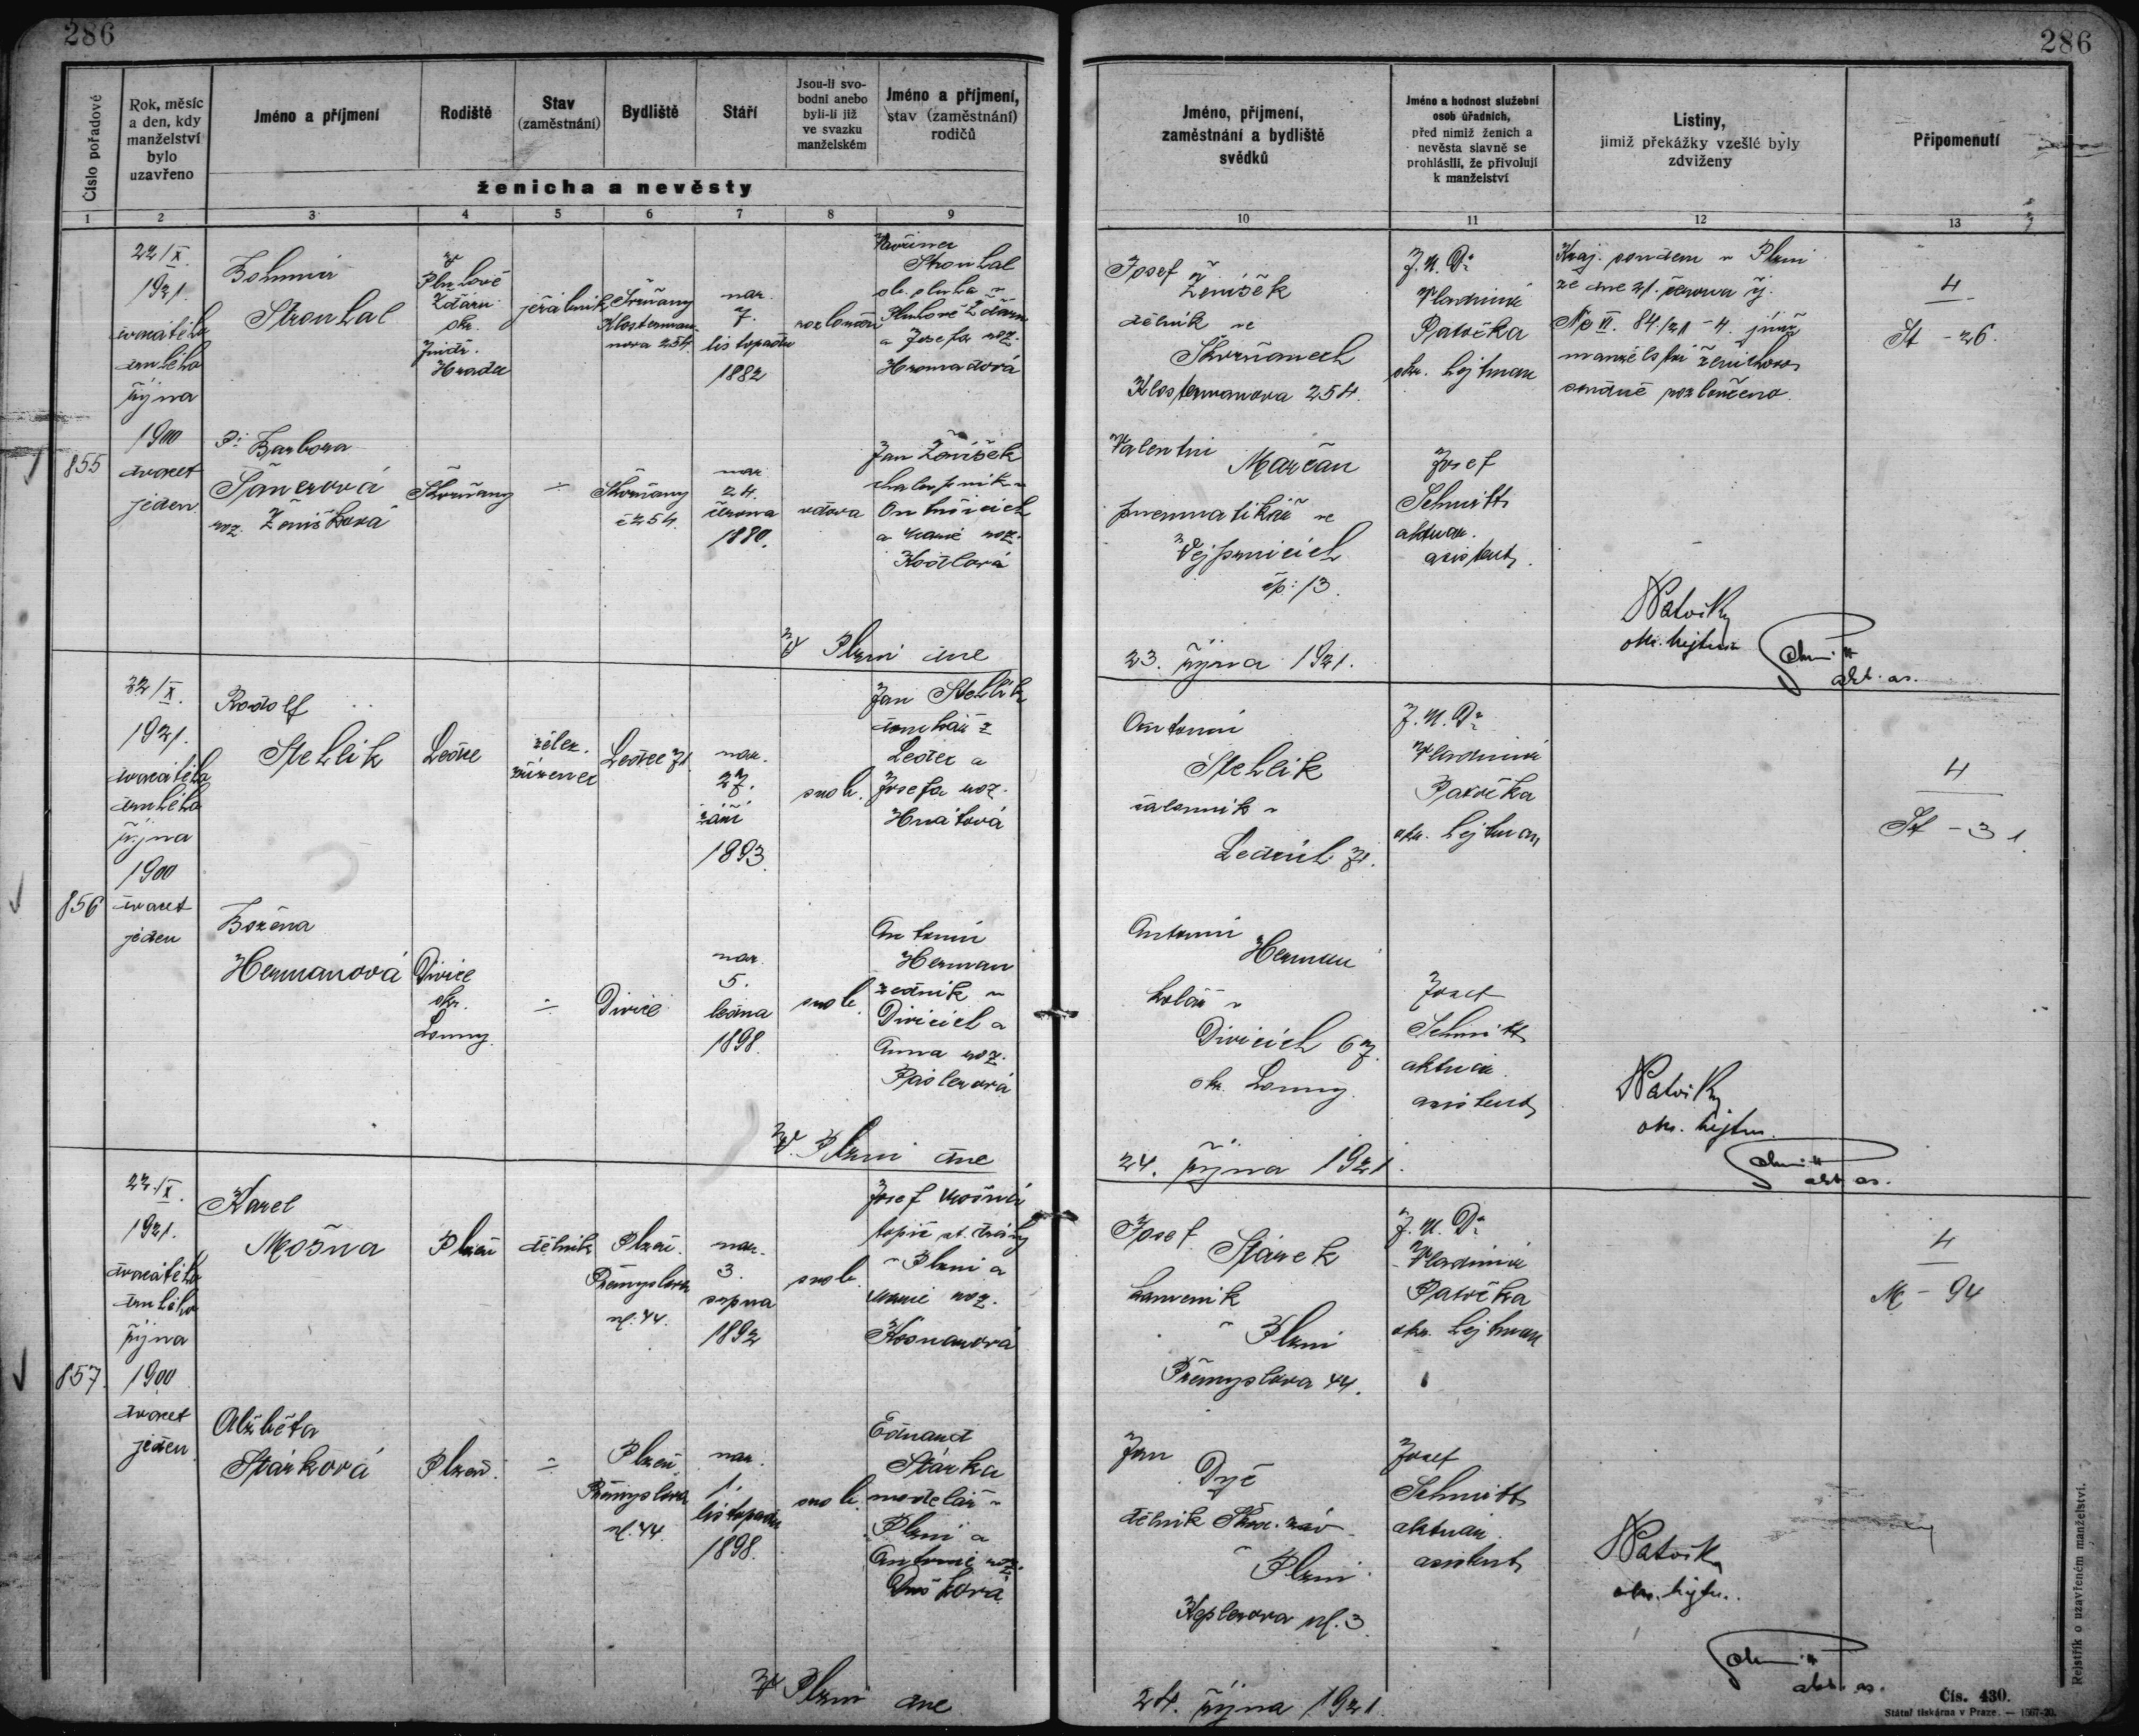 286
286
Číslo pořadové
Rok, měsíc
a den, kdy
manželství
bylo
uzavřeno
Jméno a příjmení
Rodiště
Stav
(zaměstnání)
Bydliště
Stáří
Jsou-li svo-
bodni anebo
byli-li již
ve svazku
manželském
Jméno a příjmení,
stav (zaměstnání)
rodičů
ženicha a nevěsty
Jméno, příjmení,
zaměstnání a bydliště
svědků
Jméno a hodnost služební
osob úřadních,
před nimiž ženich a
nevěsta slavně se
prohlásili, že přivolují
k manželství
Listiny,
jimiž překážky vzešlé byly
zdviženy
Připomenutí
1
2
3
4
5
6
7
8
9
10
11
12
13
855
22/X.
1921.
dvacátého
druhého
října
1900
dvacet
jeden
Bohumír
Strouhal
Pluhově
Žďáru
okr.
Jindř.
Hradec
jeřábník
Skvrňany
Klosterman-
nova 254.
nar.
7.
listopadu
1882
Strouhal
Pluhově Žďáru
a Josefa roz.
Hromadová
Josef
Ženíšek
dělník ve
Skvrňanech
Klostermanova 254.
J. U. Dr
Vladimír
Patočka
okr. hejtman
Kraj. soudem v Plzni
ze dne 21. června
84/21 - 4. jímž
manželství ženichovo
soudně rozloučeno.
4
St - 26.
Barbora
roz. Ženíšková
Skvrňany
÷
Skvrňany
č 254.
nar.
24.
června
1880.
vdova
Jan Ženíšek
a Marie roz.
Valentin
Marčan
pneumatikář ve
Vejprnicích
čp: 13.
Josef
Schmitt
aktuar.
asistent.
okr. hejtman
akt. as.
V Plzni dne
23. října 1921.
856
22/X.
1921.
dvacátého
druhého
října
1900
dvacet
jeden
Rudolf
Stehlík
Ledce
želez.
zřízenec
Ledce 71
nar.
27.
září
1893.
svob.
Jan Stehlík
domkář z
Ledec a
Josefa roz.
Hnátová
Antonín
Stehlík
čalouník v
Ledcích 71.
J. U. Dr
Vladimír
Patočka
okr. hejtman
4
St - 31.
Božena
Hermanová
Divice
okr.
Louny.
÷
Divice
nar.
5.
ledna
1898.
svob.
Antonín
Herman
zedník v
Divicích a
Anna roz.
Páslerová
Antonín
Herman
kolář v
Divicích 67.
okr. Louny.
Josef
Schmitt
aktuar.
asistent
okr. hejtm.
akt. as.
V Plzni dne
24. října 1921.
857.
22./X.
1921.
dvacátého
druhého
října
1900
dvacet
jeden
Karel
Mošna
Plzeň
dělník
Plzeň.
Přemyslova
ul. 44.
nar.
3.
srpna
1892
svob.
Josef Mošna
topič st. dráhy
v Plzni a
Marie roz.
Josef
Stárek
kameník
v Plzni
Přemyslova 44.
J. U. Dr
Vladimír
Patočka
okr. hejtman
4
M - 94
Alžběta
Stárková
Plzeň.
÷
Plzeň
Přemyslova
ul. 44.
nar.
1.
listopadu
1898.
svob.
Eduard
Stárka
modelář v
Plzni a
Antonie roz.
Dušková.
Jan
Dyč
dělník Škod. záv.
v Plzni.
Keplerova ul. 3.
Josef
Schmitt
aktuár.
asistent
okr. hejtm.
akt. as.
V Plzni dne
24. října 1921.
Rejstřík o uzavřeném manželství.
Čís. 430.
Státní tiskárna v Praze. — 1567-20.